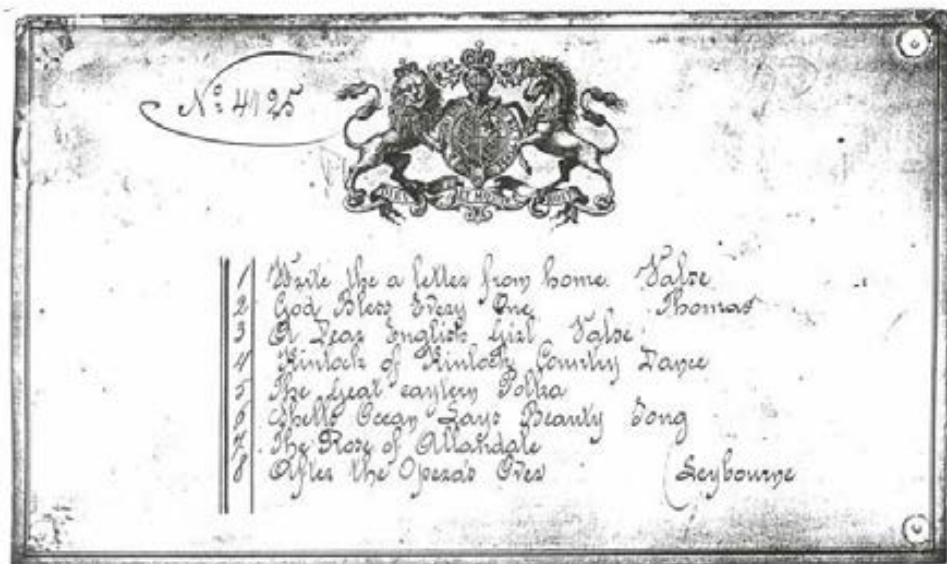 No. 4125
DIEU ET MON DROIT
1 Write the a letter from home. Valse
2 God Bless Every One. Thomas
3 A Dear English Girl Valse
4 Kinlock of Kinlock Country Dance
5 The Great eastern Polka
6 Shells Ocean Song
7. The Rose of Allandale
8 After the Opera's Over (Leybourne